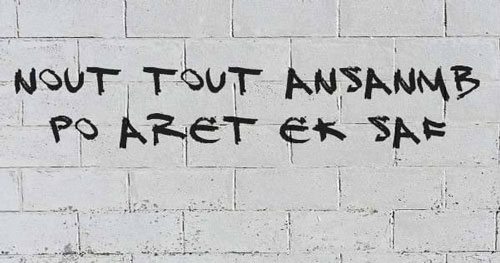 NOUT TOUT ANSANMB
PO ARET EK SAF